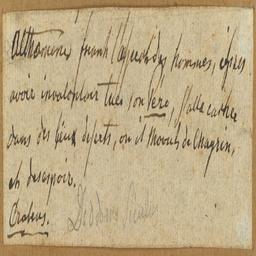 Althemenes fuyant l'aspect des hommes, après
avoir involontairement tué son Père, s'alla cacher
dans des lieux déserts, où il mourut de chagrin,
et desespoir.